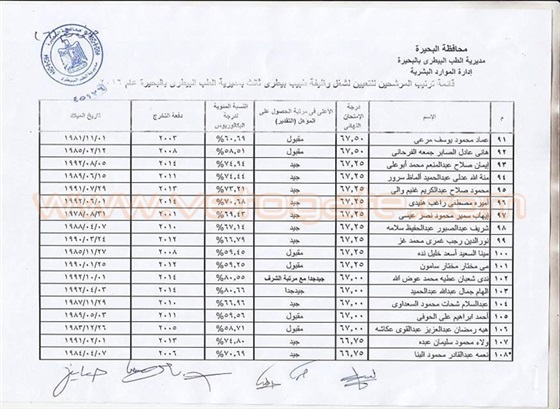 محافظة البحيرة
مديرية الطب البيطرى بالبحيرة
إدارة الموارد البشرية
قائمة ترتيب المرشحين للتعيين لشغل وظيفة طبيب بيطرى ثالث بمديرية الطب البيطرى بالبحيرة عام ٢٠١٦
م الإسم درجة الإمتحان النهائى الأعلى فى مرتبة الحصول على المؤهل (التقدير) النسبة المئوية لدرجة البكالوريوس دفعة التخرج تاريخ الميلاد
٩١ عماد محمود يوسف مرعى ٦٧,٥٠ مقبول ٦٠,٦٩% ٢٠٠٣ ١٩٨١/١١/٠١
٩٢ هانى عادل الصابر جمعه الفرحاتى ٦٧,٥٠ مقبول ٥٨,٥١% ٢٠٠٨ ١٩٨٥/٠٢/١٢
٩٣ إيمان صلاح عبدالمنعم محمد أبوعلى ٦٧,٢٥ جيد ٧٤,٩٤% ٢٠١٤ ١٩٩٢/٠٨/٠٥
٩٤ منة الله عدلى عبدالحميد ألماظ سرور ٦٧,٢٥ جيد ٧٤,٤٤% ٢٠١١ ١٩٨٩/٠٦/١٥
٩٥ محمود صلاح عبدالكريم غنيم والى ٦٧,٢٥ جيد ٢٠١٤ ١٩٩١/٠٧/٢٩
٩٦ أميره مصطفى راغب هنيدى ٦٧,٢٥ جيد ٧٠,٦٨% ١٩٩٢/٠٦/٠١
٩٧ إيهاب سمير محمود نصر عيسى ٦٧,٢٥ جيد ٦٩,٤٣% ٢٠٠١ ١٩٧٨/٠٨/٣١
٩٨ شريف عبدالصبور عبدالحفيظ سلامه ٦٧,٢٥ جيد ٢٠١٠ ١٩٨٨/٠٤/٠٧
٩٩ نورالدين رجب عمرى محمد غز ٦٧,٢٥ جيد ٦٦,٧٩% ٢٠١٢ ١٩٩٠/٠٣/٢٤
١٠٠ مينا السعيد أسعد خليل نده ٦٧,٢٥ مقبول ٥٩,٤٥% ٢٠٠٨ ١٩٨٥/١١/٢٧
١٠١ مى مختار مختار سامون ٦٧,٢٥ مقبول ٥٩,٢٥% ٢٠١٢ ١٩٩٠/١٠/٢٠
١٠٢ ندى شعبان عطيه محمد عوض الله ٦٧,٠٠ جيدجدا مع مرتبة الشرف ٨٠,٥٥% ٢٠١٤ ١٩٩٢/١٠/٠١
١٠٣ الهام جمال عبدالله عبدالحميد ٦٧,٠٠ جيدجدا ٨٠,٦٦% ٢٠١٤ ١٩٩٢/٠٤/٠٣
١٠٤ عبدالسلام شحات محمود السعداوى ٦٧,٠٠ جيد ٦٦,٩٦% ٢٠١٠ ١٩٨٧/١١/٢٩
١٠٥ احمد ابراهيم على الحوفى ٦٧,٠٠ مقبول ٥٩,٥٥% ٢٠١١ ١٩٨٩/٠٥/٠٣
١٠٦ هبه رمضان عبدالعزيز عبدالقوى عكاشه ٦٧,٠٠ مقبول ٥٨,٧١% ٢٠٠٥ ١٩٨٣/١٢/٢٦
١٠٧ ولاء محمود سليمان عبده ٦٦,٧٥ جيد ٧٤,٨٠% ٢٠١٣ ١٩٩١/٠٢/٠١
١٠٨* نعمه عبدالقادر محمود البنا ٦٦,٧٥ جيد ٧٠,٦٩% ٢٠٠٦ ١٩٨٤/٠٤/٠٧